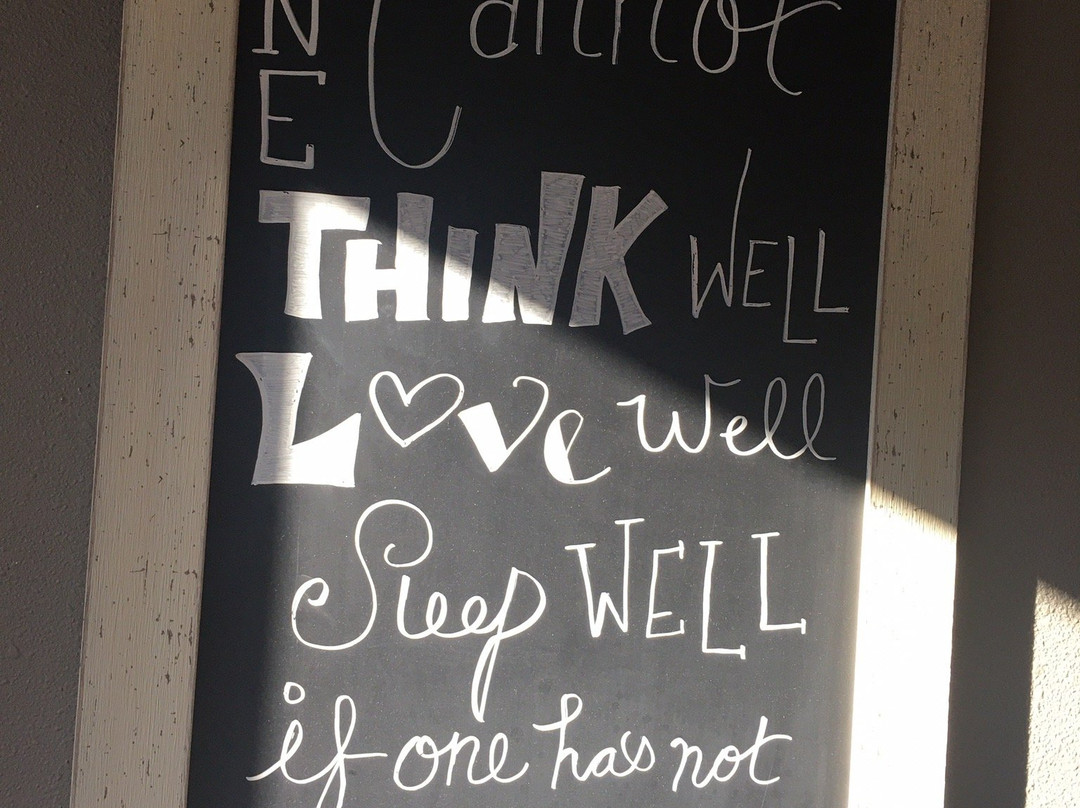 NE Cannot
THINK WELL
Love well
Sleep WELL
if one has not